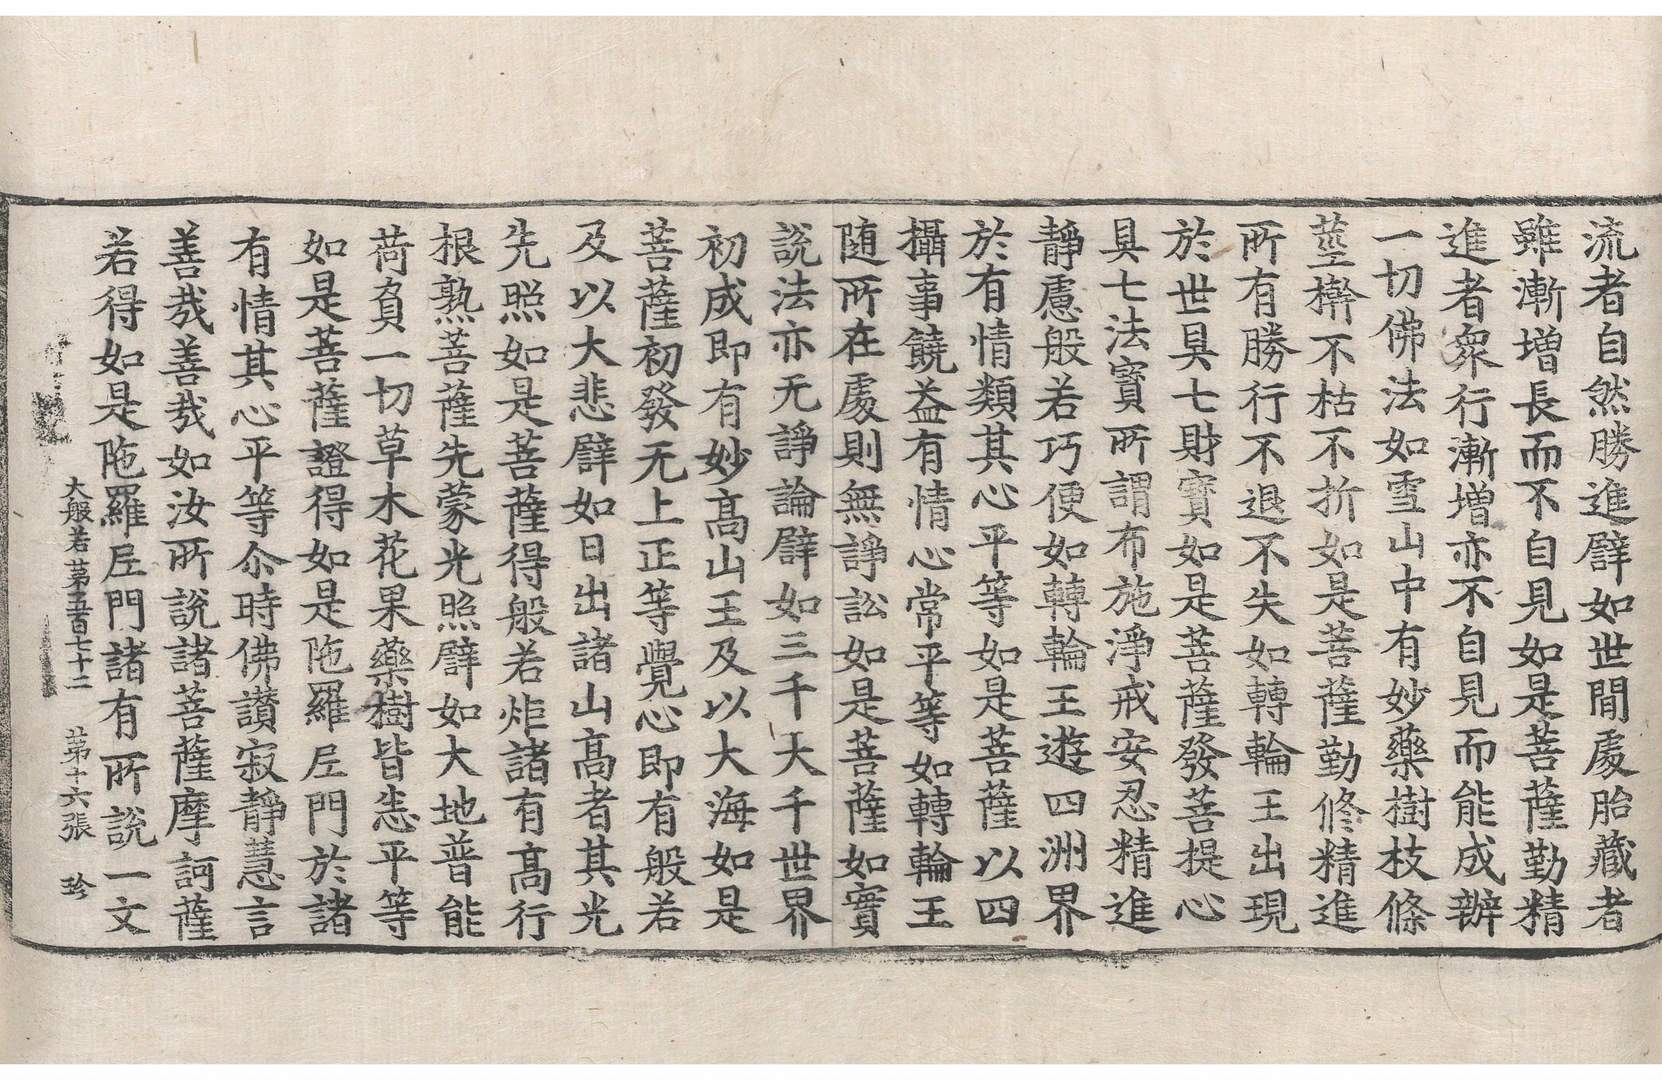 流者自然勝進譬如世間處胎藏者
雖漸增長而不自見如是菩薩勤精
進者衆行漸增亦不自見而能成辦
一切佛法如雪山中有妙藥樹枝條
莖擀不枯不折如是菩薩勤修精進
所有勝行不退不失如轉輪王出現
於世具七財寶如是菩薩發菩提心
具七法寶所謂布施淨戒安忍精進
靜慮般若巧便如轉輪王遊四洲界
於有情類其心平等如是菩薩以四
攝事饒益有情心常平等如轉輪王
随所在處則無諍訟如是菩薩如實
說法亦无諍論譬如三千大千世界
初成即有妙高山王及以大海如是
菩薩初發无上正等覺心即有般若
及以大悲譬如日出諸山高者其光
先照如是菩薩得般若炬諸有高行
根熟菩薩先蒙光照譬如大地普能
荷負一切草木花果藥樹皆悉平等
如是菩薩證得如是陁羅尼門於諸
有情其心平等尒時佛讃寂靜慧言
善哉善哉如汝所說諸菩薩摩訶薩
若得如是陁羅尼門諸有所說一文
大般若苐五百七十二 苐十六張 珍